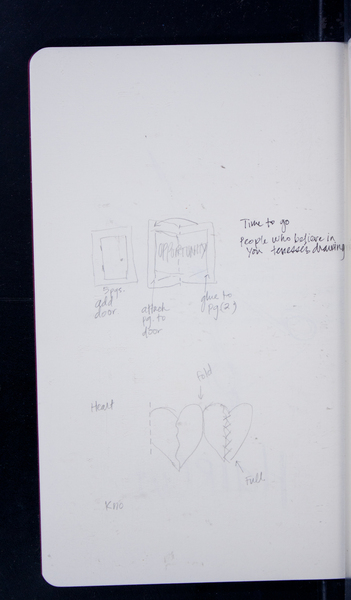 Time to go
People who believe in
you
drawing
OPPORTUNITY
add
door
attach
pg. to
door
glue to
pg(2)
Fold
Heart
Full
KNO